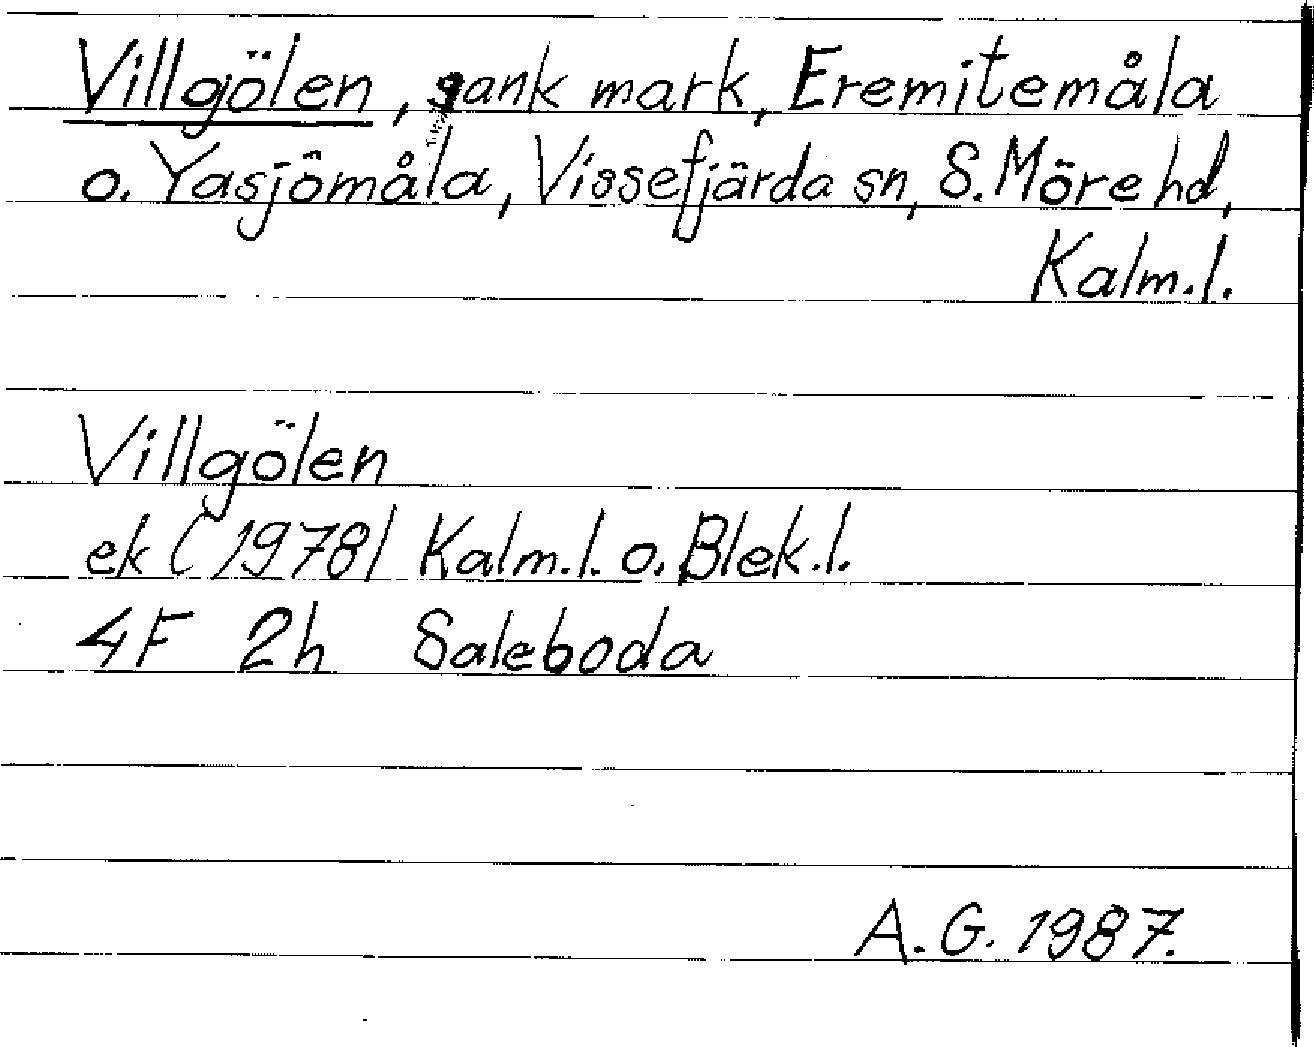 Villgölen, sank mark, Eremitemåla
o. Yasjömåla, Vissefjärda sn, S. Möre hd,
Kalm.l.
Villgölen
ek (1978) Kalm.l. o. Blek.l.
4F 2h Saleboda
A.G. 1987.